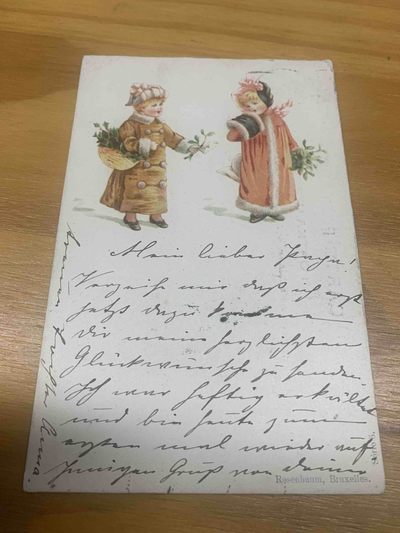 Mein lieber Papa!
Verzeih mir daß ich erst
jetzt dazu komme
dir meine herzlichsten
Glückwünsche zu senden.
Ich war heftig erkältet
und bin heute zum
ersten mal wieder auf
Innigen Gruß von deiner
Anna.
Rosenbaum, Bruxelles.